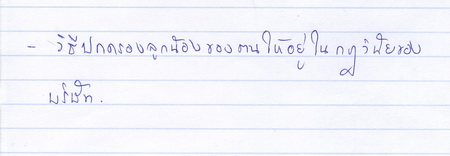 - วิธีปกครองลูกน้องของตนให้อยู่ในกฎวินัยของ
บริษัท.